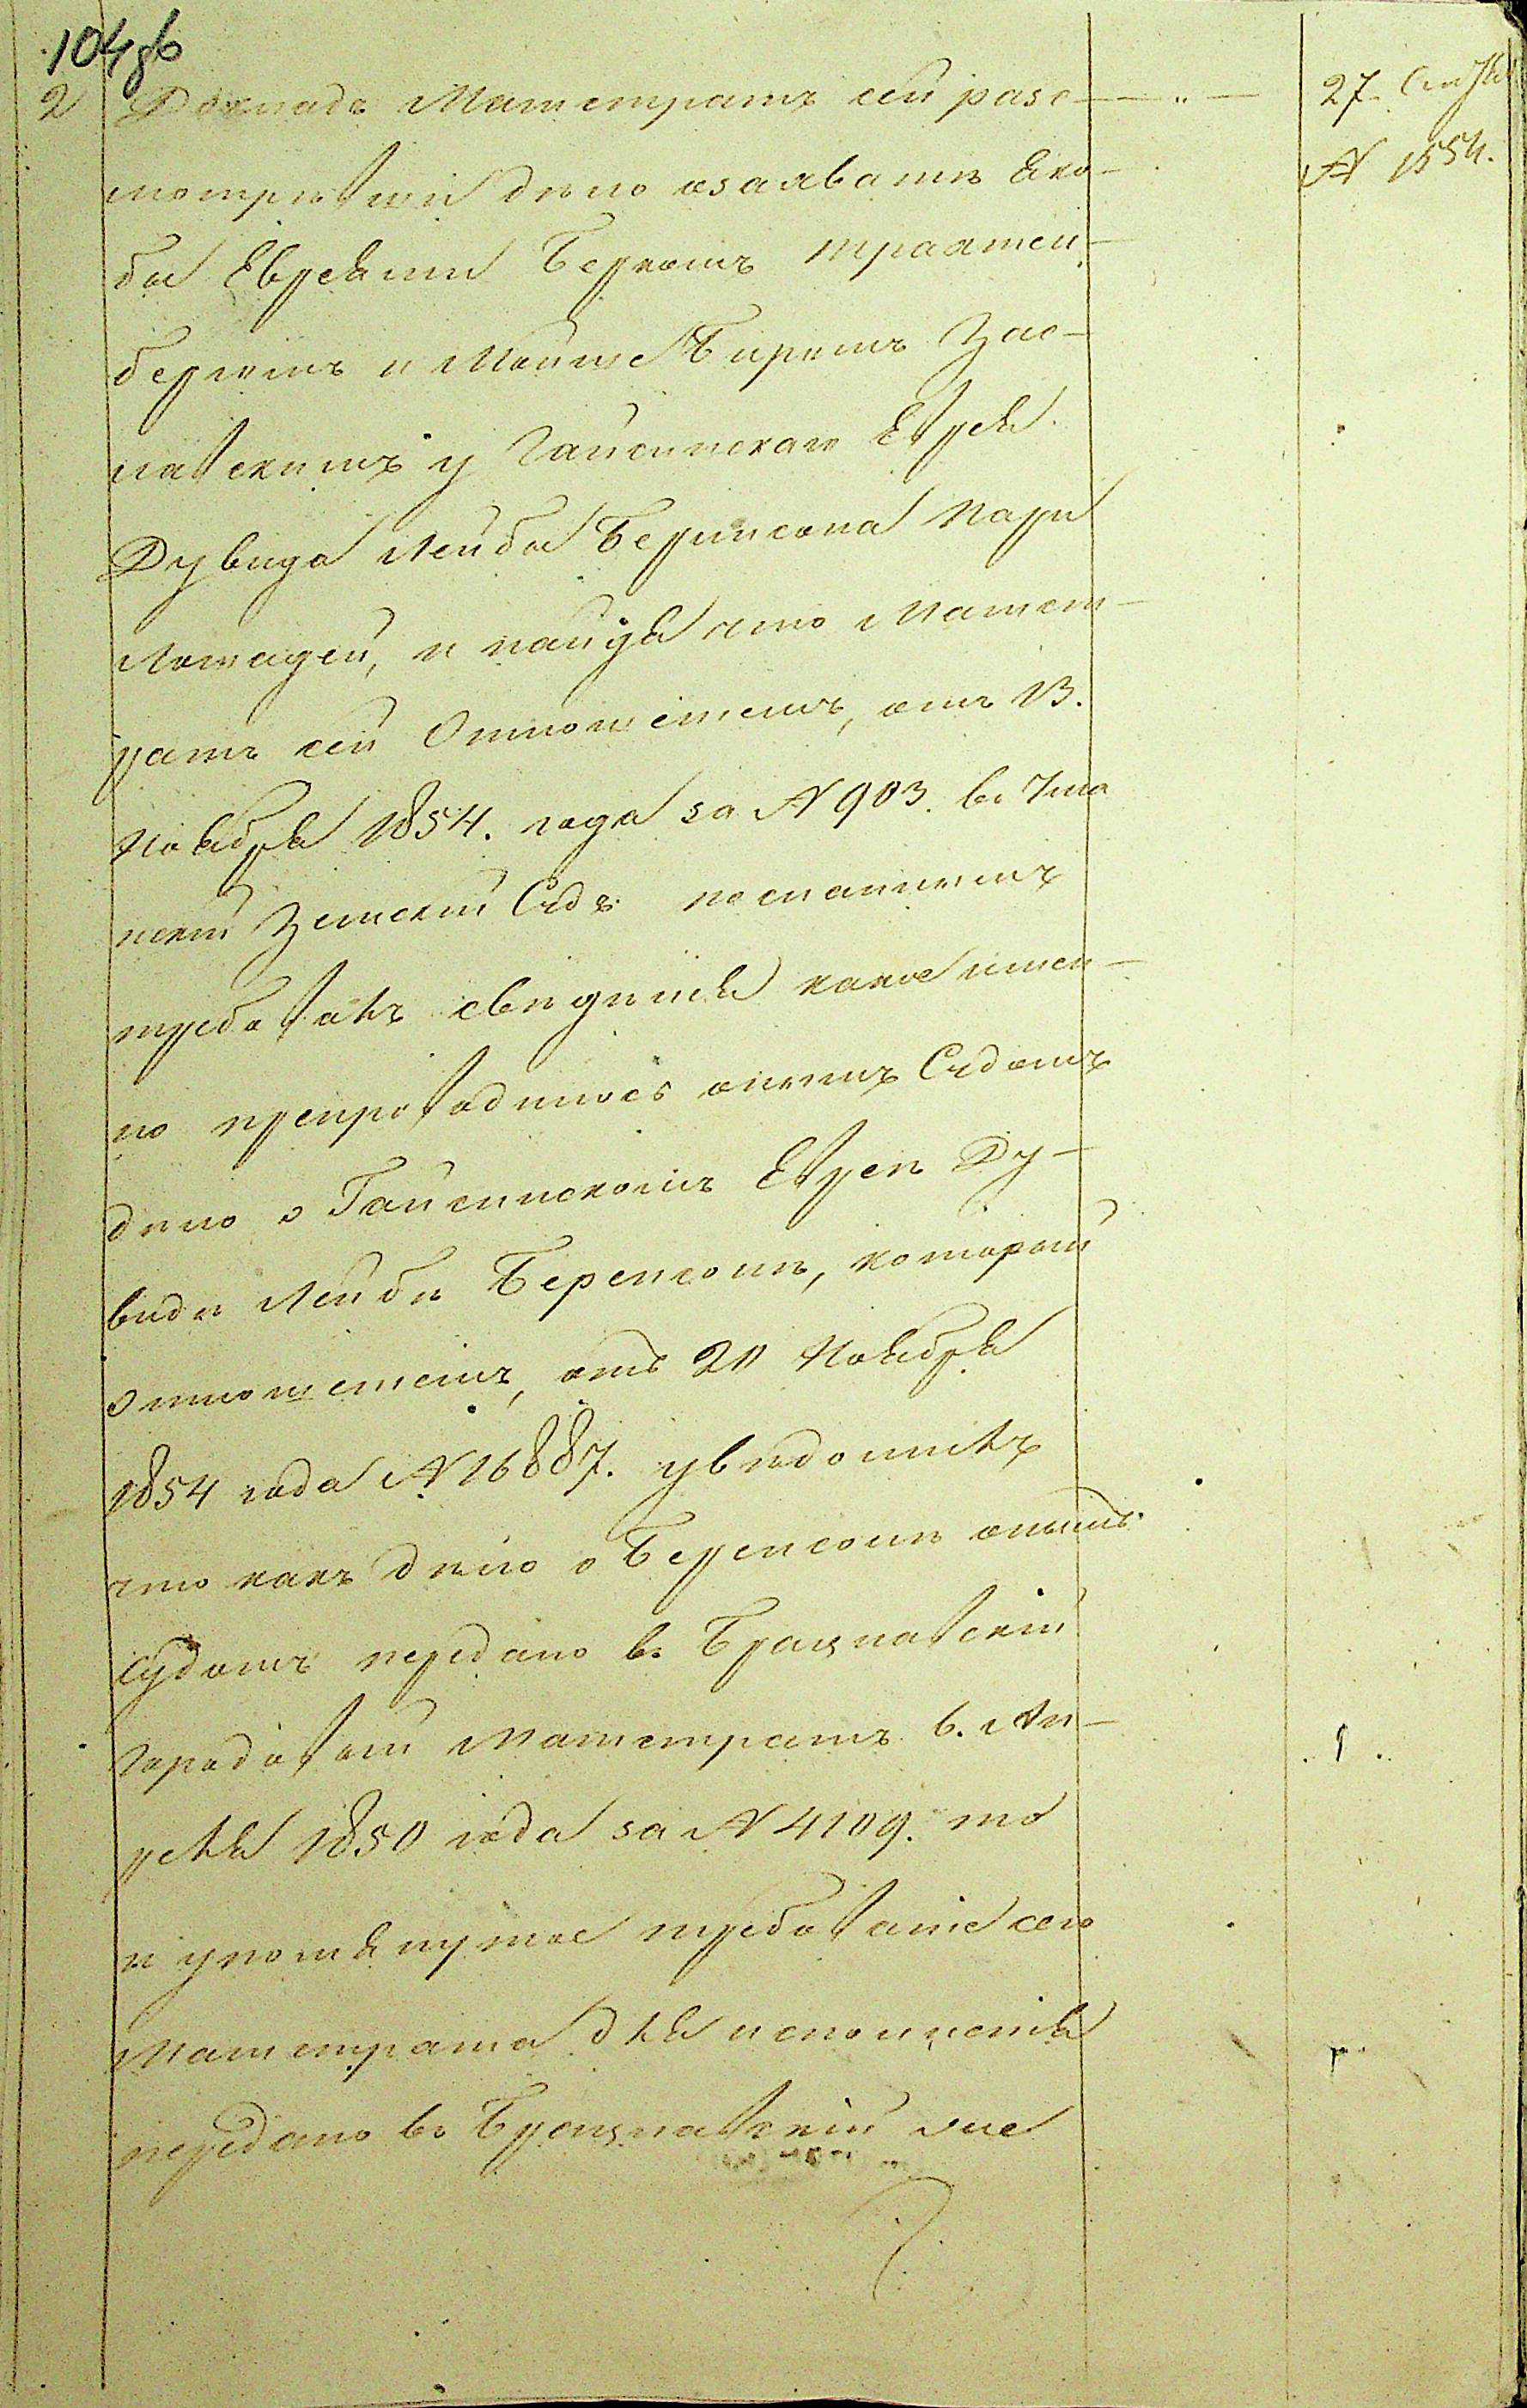 104 об
2 Докладъ Магистратъ сей разс-
27 Сентября
N 1554.
мотревши дело озахватѣ яко-
бы Евреями Беркомъ Траатен-
бергомъ и Мойше Биромъ Зас-
лавскимъ у Гайсинскаго Еврея
Дувида Лейбы Беринсона пары
Лошадей, и найдя что Магист-
ратъ сей Отношеніемъ, отъ 13.
Ноября 1854. года за N 903. въ
скій Земскій Судъ постановилъ
требовалъ сведенія какое имен-
но препроводилось онымъ Судомъ
дело о Гайсинскомъ Евреѣ Ду-
виде Лейбе Беренсоне, который
отношеніемъ, отъ 20 Ноября
1854 года N 16887. уведомилъ
что какъ дело о Беренсоне онымъ
судомъ передано въ Брацлавскій
Городовой Магистратъ в. Ап-
реля 1850 года за N 4109. то
и упомянутое требованіе сего
Магистрата для исполненія
передано въ Брацлавскій же